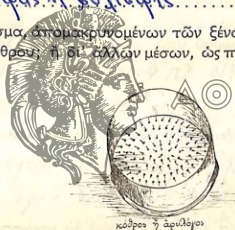 σμα, ἀπομακρυνομένων τῶν ξένω
θρους ἢ δι' ἄλλων μέσων, ὡς π
ΑΘ
κόθρος ἢ ἀρυλόγος